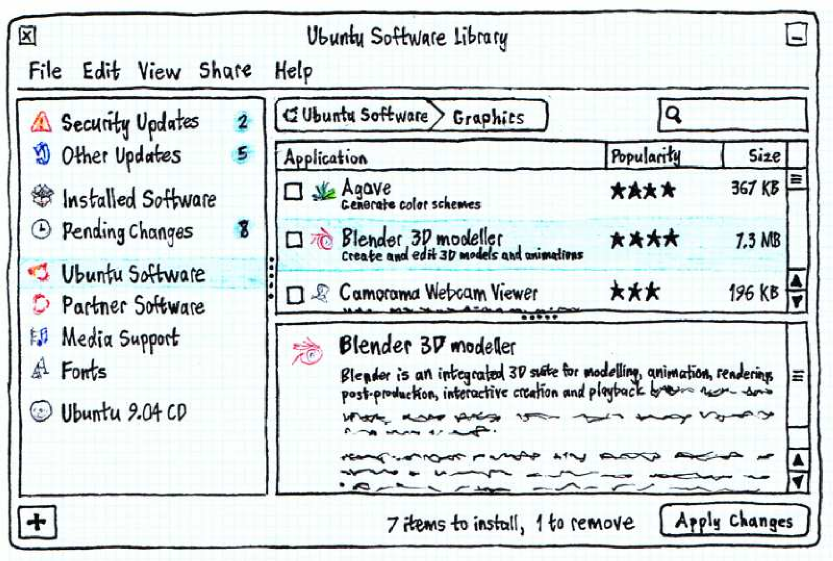 Ubuntu Software Library
File Edit View Share Help
Security Updates 2
Other Updates 5
Installed Software
Pending Changes 8
Ubuntu Software
Partner Software
Media Support
Fonts
Ubuntu 9.04 CD
Ubuntu Software Graphics
Application Popularity Size
Agave ★★★★ 367 KB
Generate color schemes
Blender 3D modeller ★★★★ 7.3 MB
Create and edit 3D models and animations
Camorama Webcam Viewer ★★★ 196 KB
Blender 3D modeller
Blender is an integrated 3D suite for modelling, animation, rendering,
post-production, interactive creation and playback
7 items to install, 1 to remove Apply Changes